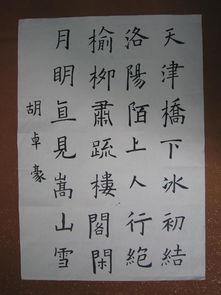 天津橋下冰初結
洛陽陌上人行絕
榆柳蕭疏樓閣閑
月明直見嵩山雪
胡卓豪